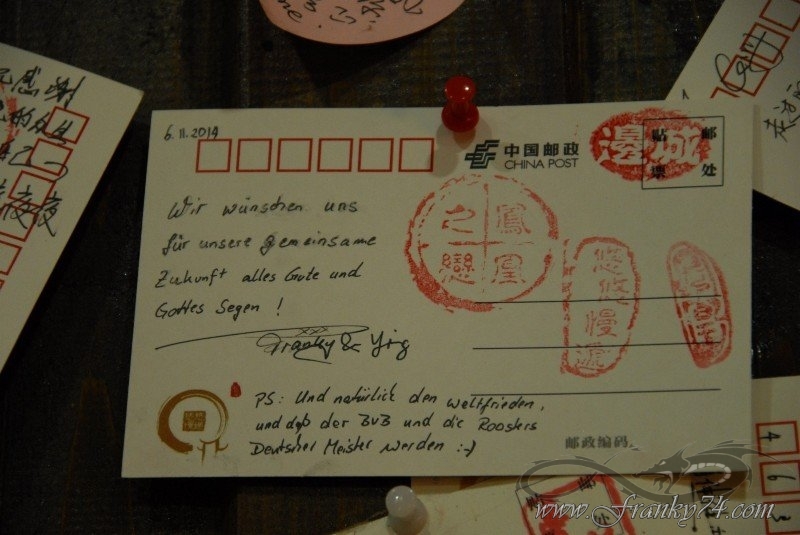 6.11.2014
中国邮政
CHINA POST
邊城
贴 邮
票 处
鳳凰之戀
悠悠慢遞
Wir wünschen uns
für unsere gemeinsame
Zukunft alles Gute und
Gottes Segen !
Franky & Ying
PS: Und natürlich den Weltfrieden,
und daß der BVB und die Roosters
Deutscher Meister werden :-)
邮政编码
感谢
夜夜
4
6
3
www.Franky74.com